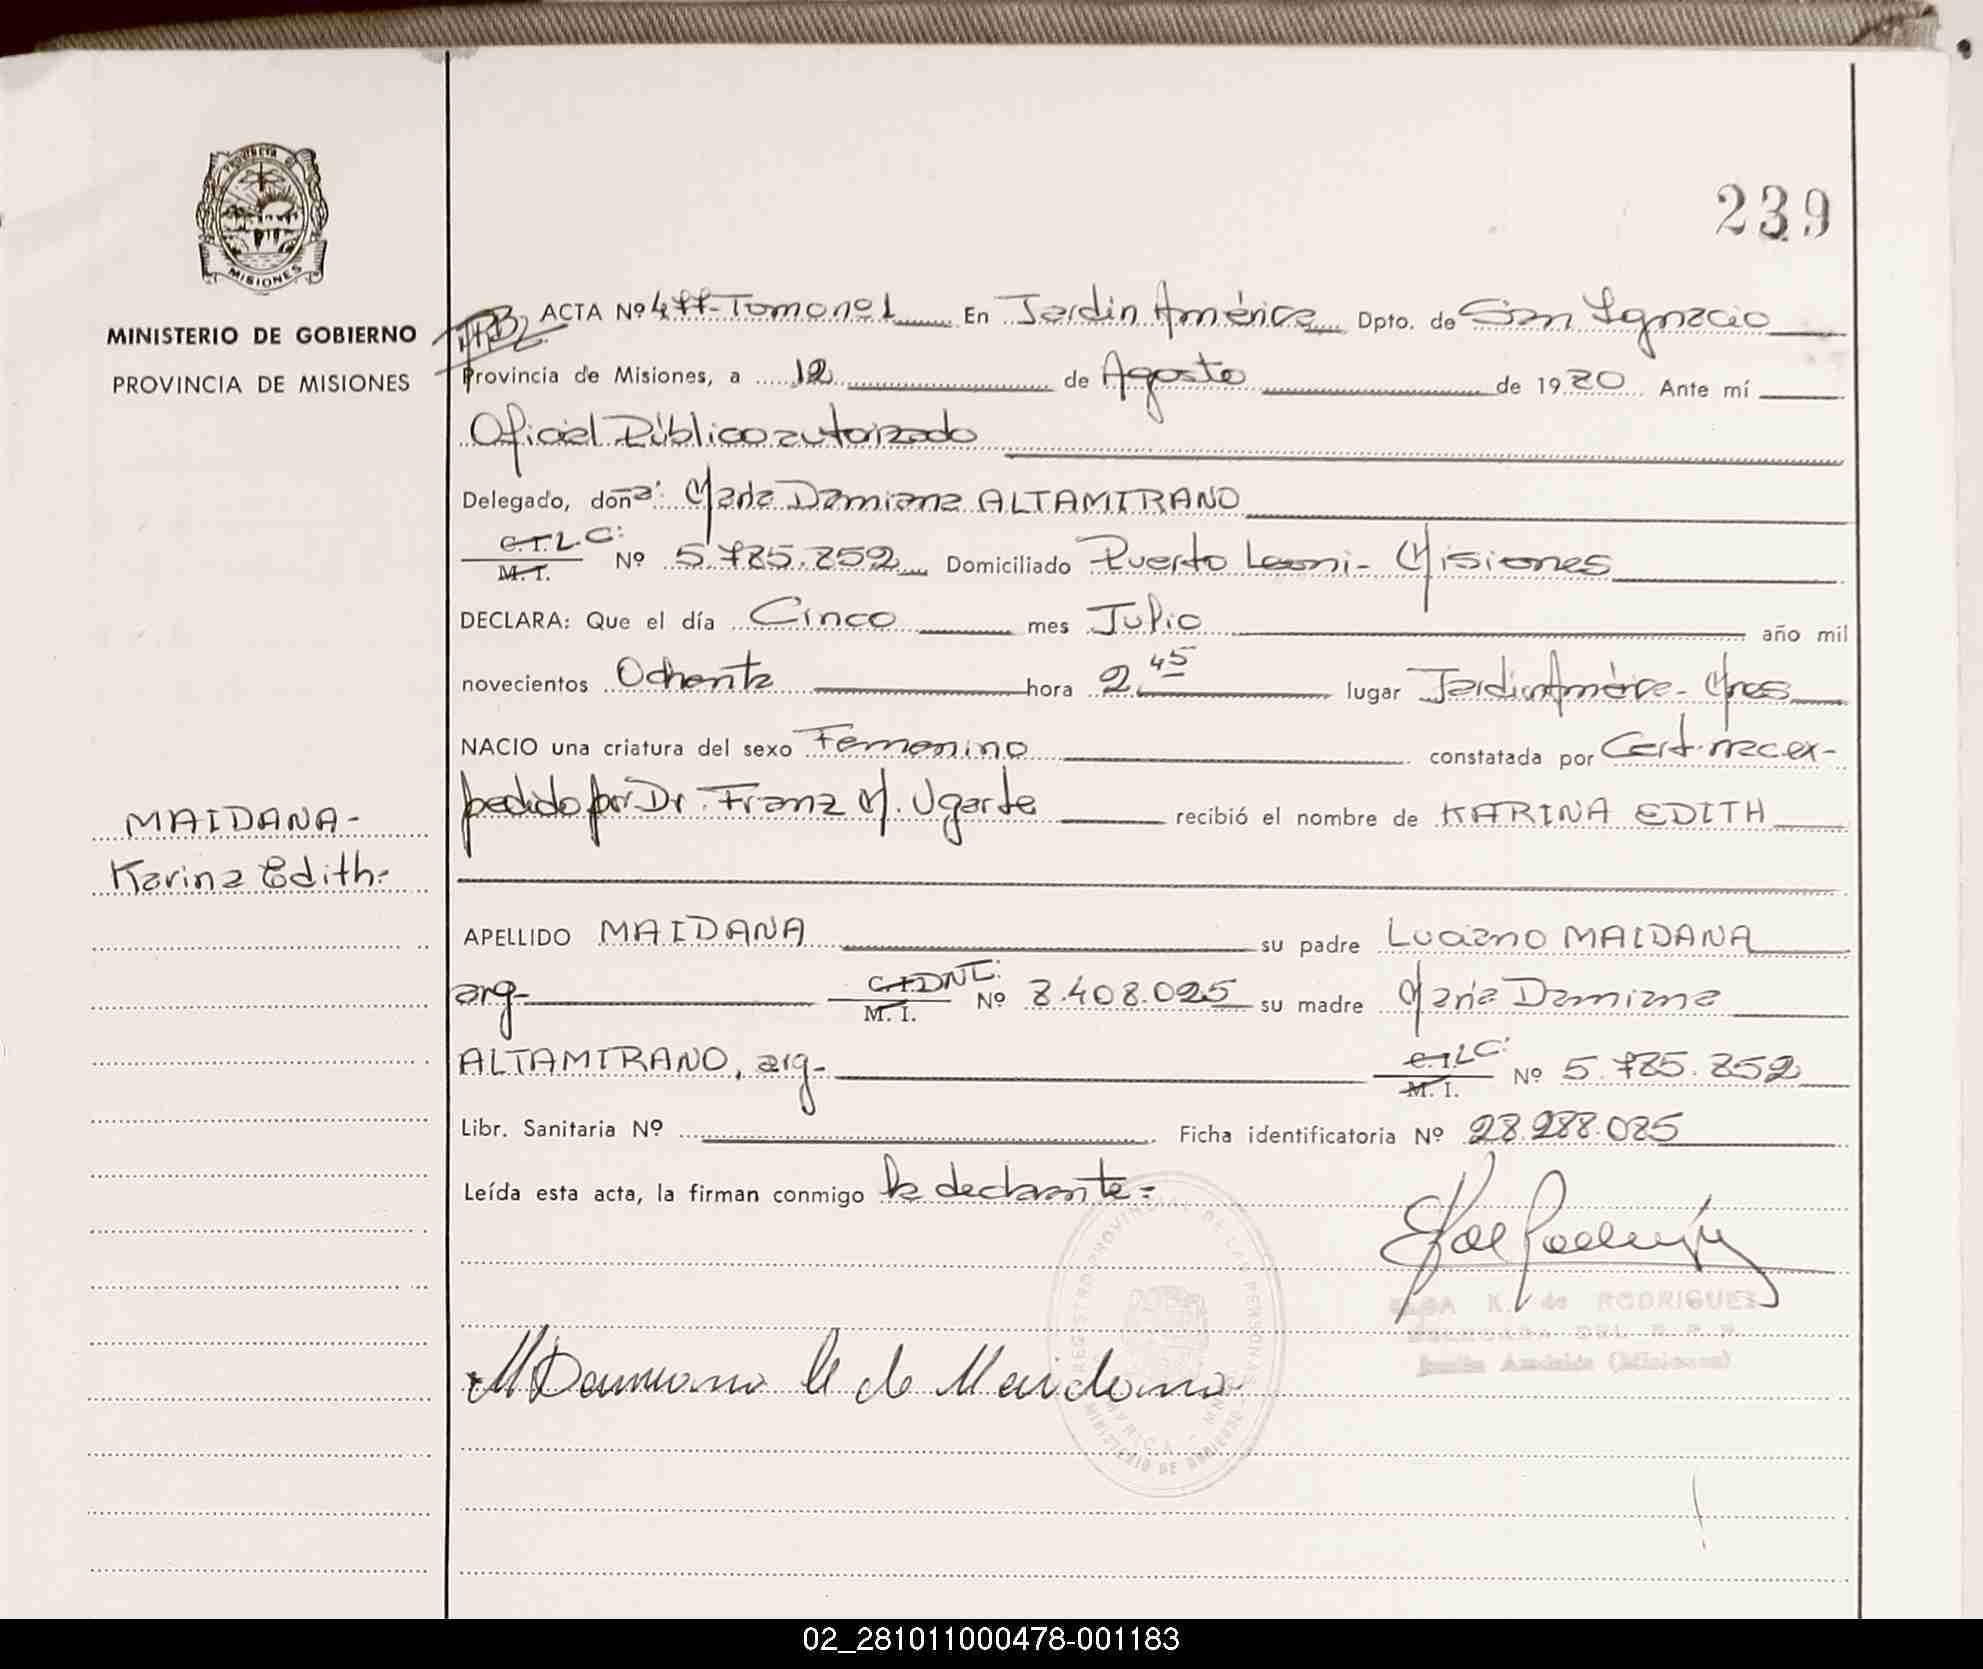 PROVINCIA DE
MISIONES
MINISTERIO DE GOBIERNO
PROVINCIA DE MISIONES
MAIDANA-
Karina Edith-
239
ACTA Nº 477-Tomo nº1 En Jardin América Dpto. de San Ignacio
Provincia de Misiones, a 12 de Agosto de 1980 Ante mí
Oficial Público autorizado
Delegado, doña: Maria Damiana ALTAMIRANO
C.I. L.C:
M.I. Nº 5.785.852 Domiciliado Puerto Leoni- Misiones
DECLARA: Que el día Cinco mes Julio año mil
novecientos Ochenta hora 2.45 lugar Jardin América- Mnes
NACIO una criatura del sexo Femenino constatada por Cert. nac ex-
pedido por Dr. Franz M. Ugarte recibió el nombre de KARINA EDITH
APELLIDO MAIDANA su padre Luciano MAIDANA
arg- C.I. DNI: M.I. Nº 8.408.025 su madre Maria Damiana
ALTAMIRANO, arg- C.I. LC: M.I. Nº 5.785.852
Libr. Sanitaria Nº Ficha identificatoria Nº 28.288.085
Leída esta acta, la firman conmigo la declarante=
ELSA K. de RODRIGUEZ
DELEGADA DEL R.P.P.
Jardín América (Misiones)
REGISTRO PROVINCIAL DE LAS PERSONAS
MINISTERIO DE GOBIERNO
M Damiana A de Maidana
02_281011000478-001183